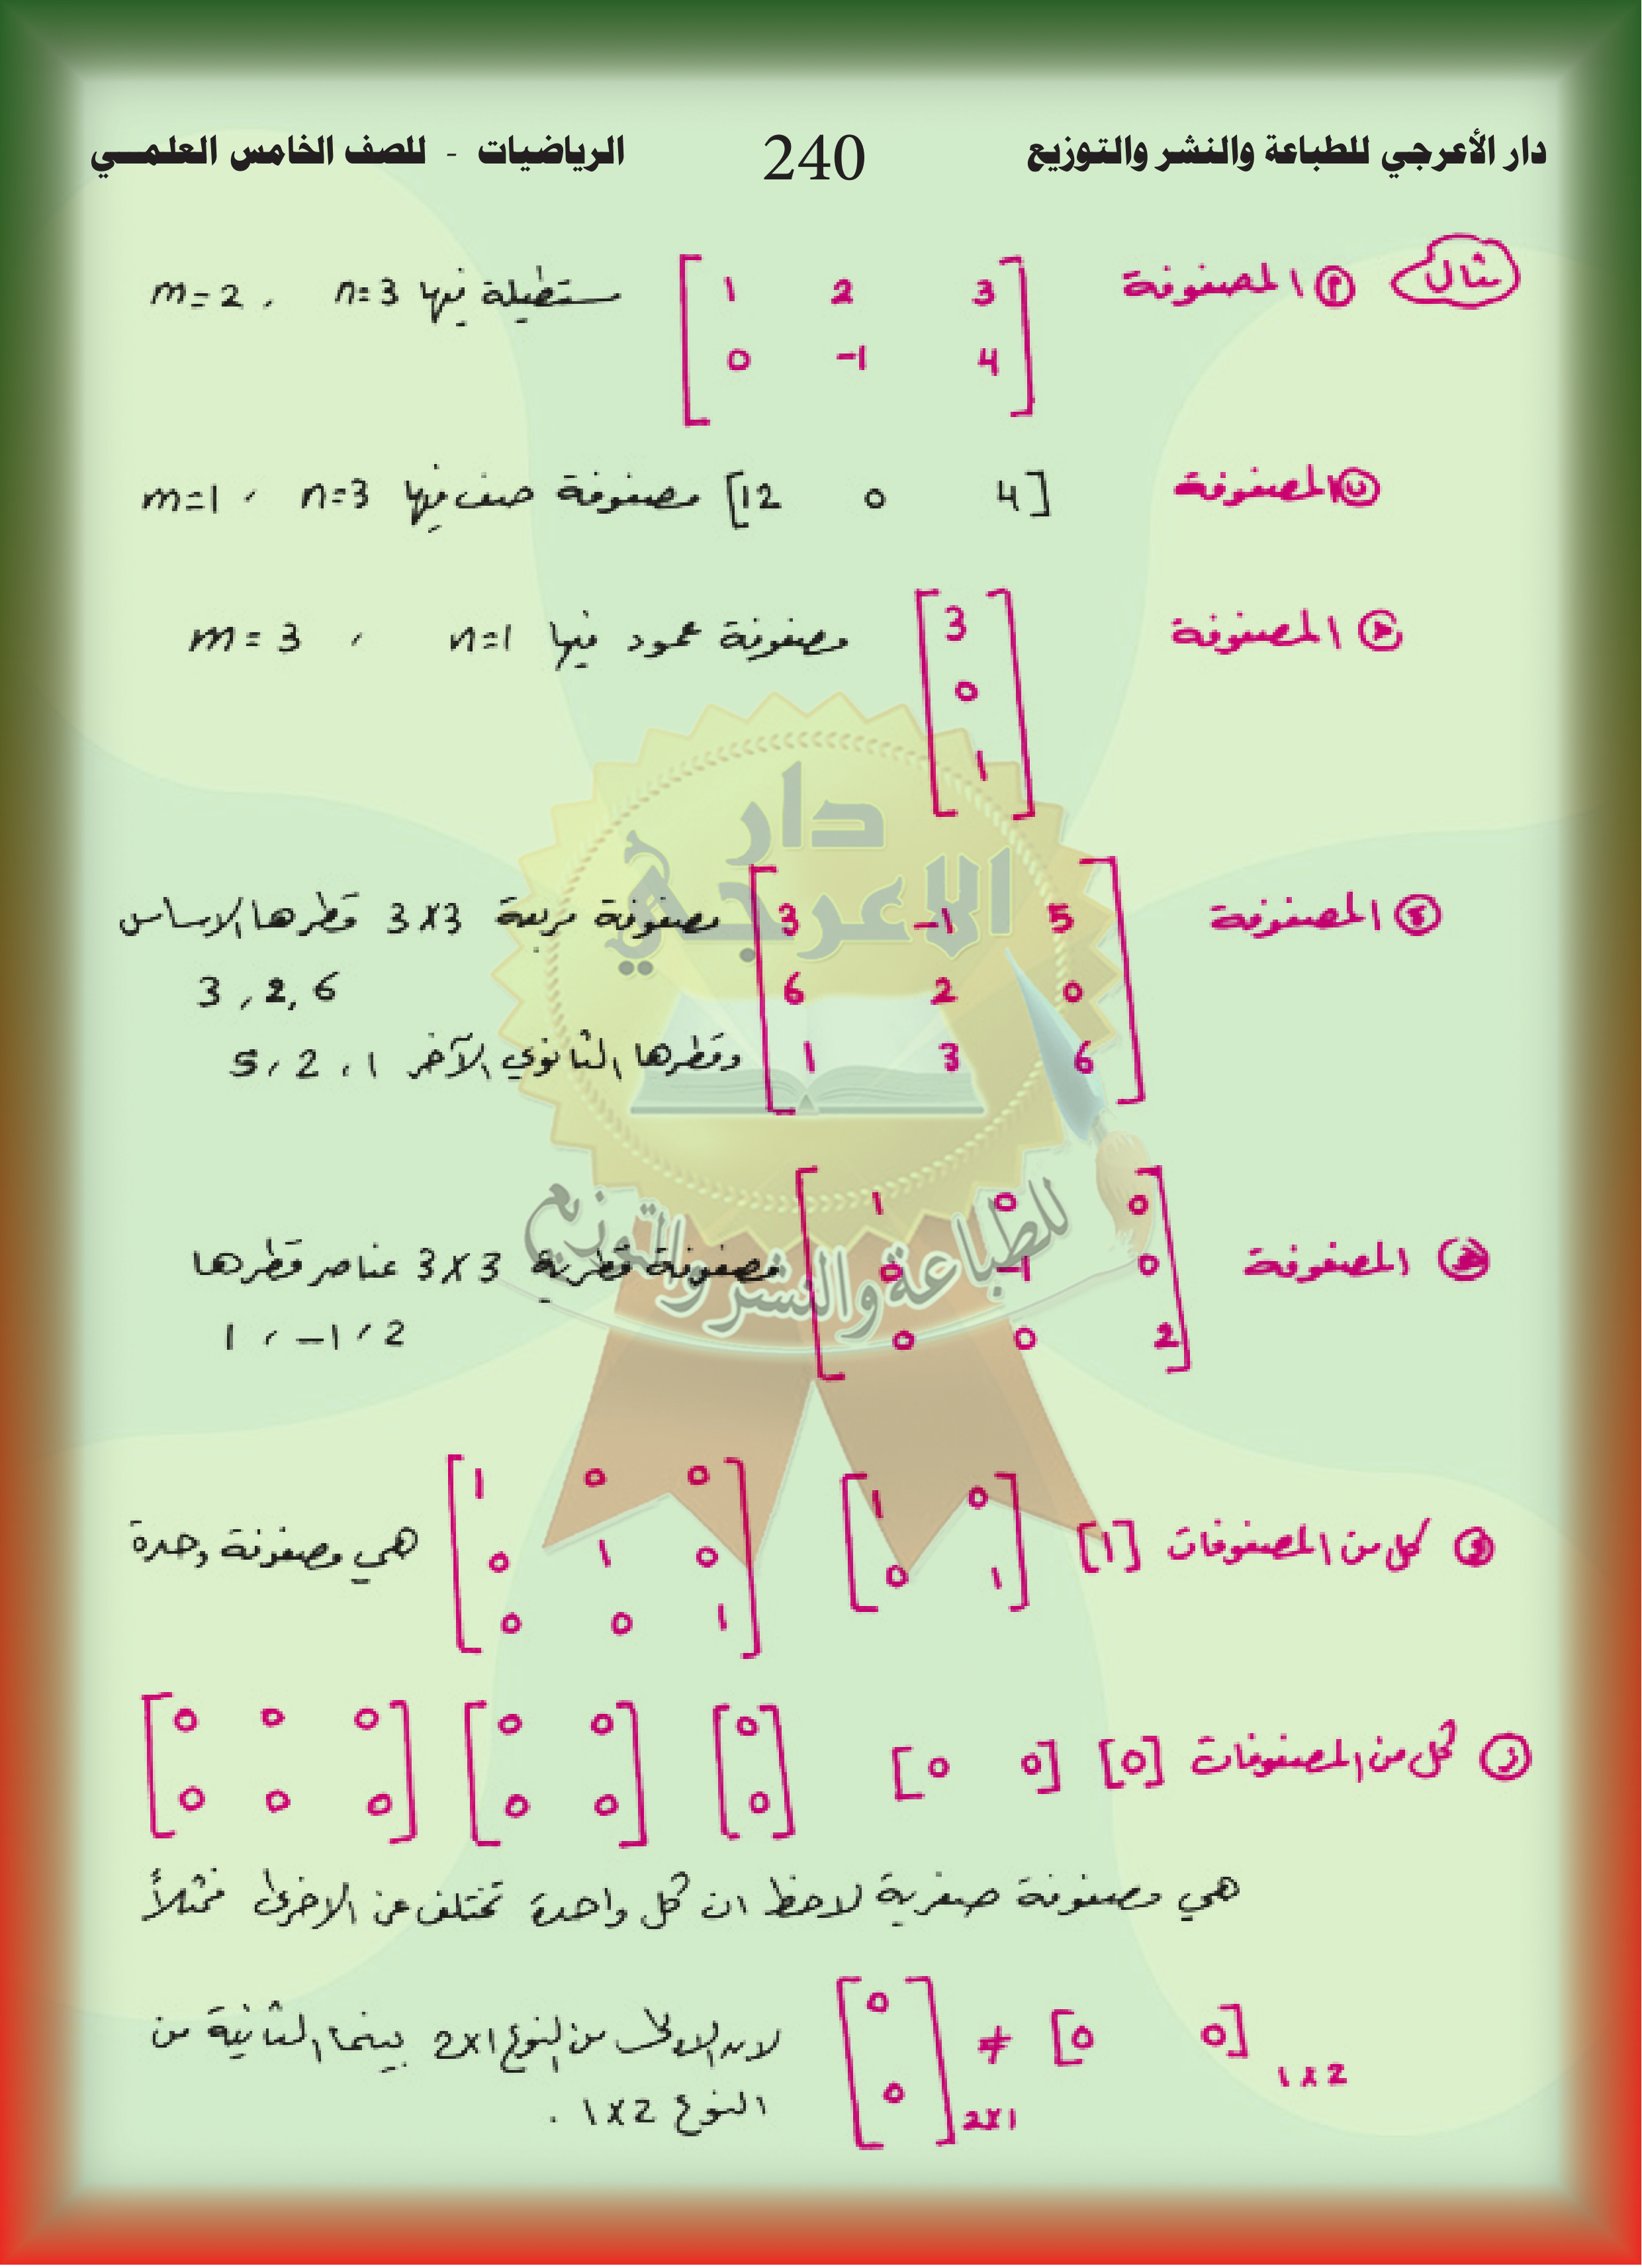 دار الأعرجي للطباعة والنشر والتوزيع 240 الرياضيات - للصف الخامس العلمـــي
مثال (أ) المصفوفة [1 2 3 مستطيلة فيها n=3 ، m=2
0 -1 4]
(ب) المصفوفة [12 0 4] مصفوفة صف فيها n=3 ، m=1
(ج) المصفوفة [3 مصفوفة عمود فيها n=1 ، m=3
0
1]
(ء) المصفوفة [3 -1 5 مصفوفة مربعة 3x3 قطرها الاساس
6 2 0 3 , 2, 6
1 3 6] وقطرها الثانوي الآخر 1 ، 2 ، 5
(هـ) المصفوفة [1 0 0
0 -1 0 مصفوفة قطرية 3x3 عناصر قطرها
0 0 2] 1 ، -1 ، 2
(و) كل من المصفوفات [1] [1 0
0 1] [1 0 0
0 1 0
0 0 1] هي مصفوفة وحدة
(ز) كل من المصفوفات [0] [0 0] [0
0] [0 0
0 0] [0 0 0
0 0 0]
هي مصفوفة صفرية لاحظ ان كل واحدة تختلف عن الاخرى فمثلاً
[0
0] 2x1 ≠ [0 0] 1x2 لان الاولى من النوع 2x1 بينما الثانية من
النوع 1x2 .
دار
الاعرجي
للطباعة والنشر والتوزيع